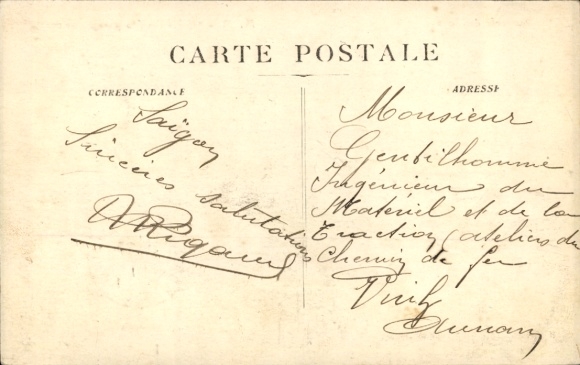 CARTE POSTALE
CORRESPONDANCE
Saïgon
Sincères salutations
Rigaud
ADRESSE
Monsieur
Gentilhomme
Ingénieur du
Matériel et de la
Traction (ateliers du
Chemin de fer
Vinh
Annam